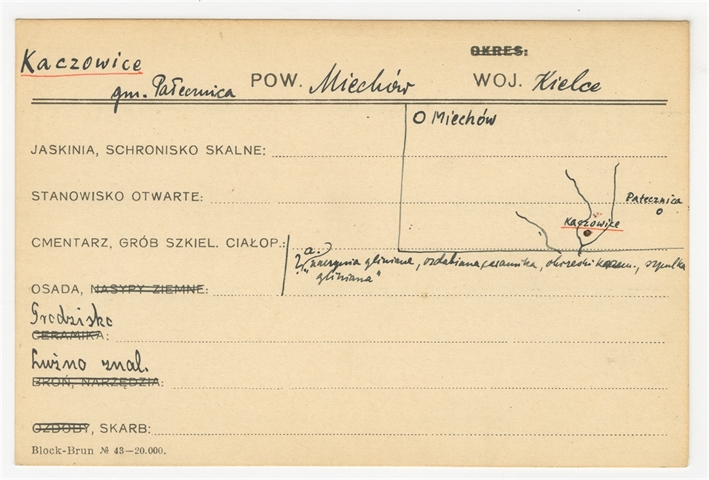 OKRES:
Kaczowice
gm. Pałecznica POW. Miechów WOJ. Kielce
Miechów
JASKINIA, SCHRONISKO SKALNE:
STANOWISKO OTWARTE:
Pałecznica
Kaczowice
CMENTARZ, GRÓB SZKIEL. CIAŁOP.:
a.
? naczynia gliniane, ozdabiana ceramika, okrzeski, szpulka
"gliniana"
OSADA, NASYPY ZIEMNE:
Grodzisko
CERAMIKA:
Luźno znal.
BROŃ, NARZĘDZIA:
OZDOBY, SKARB:
Block-Brun № 43—20.000.